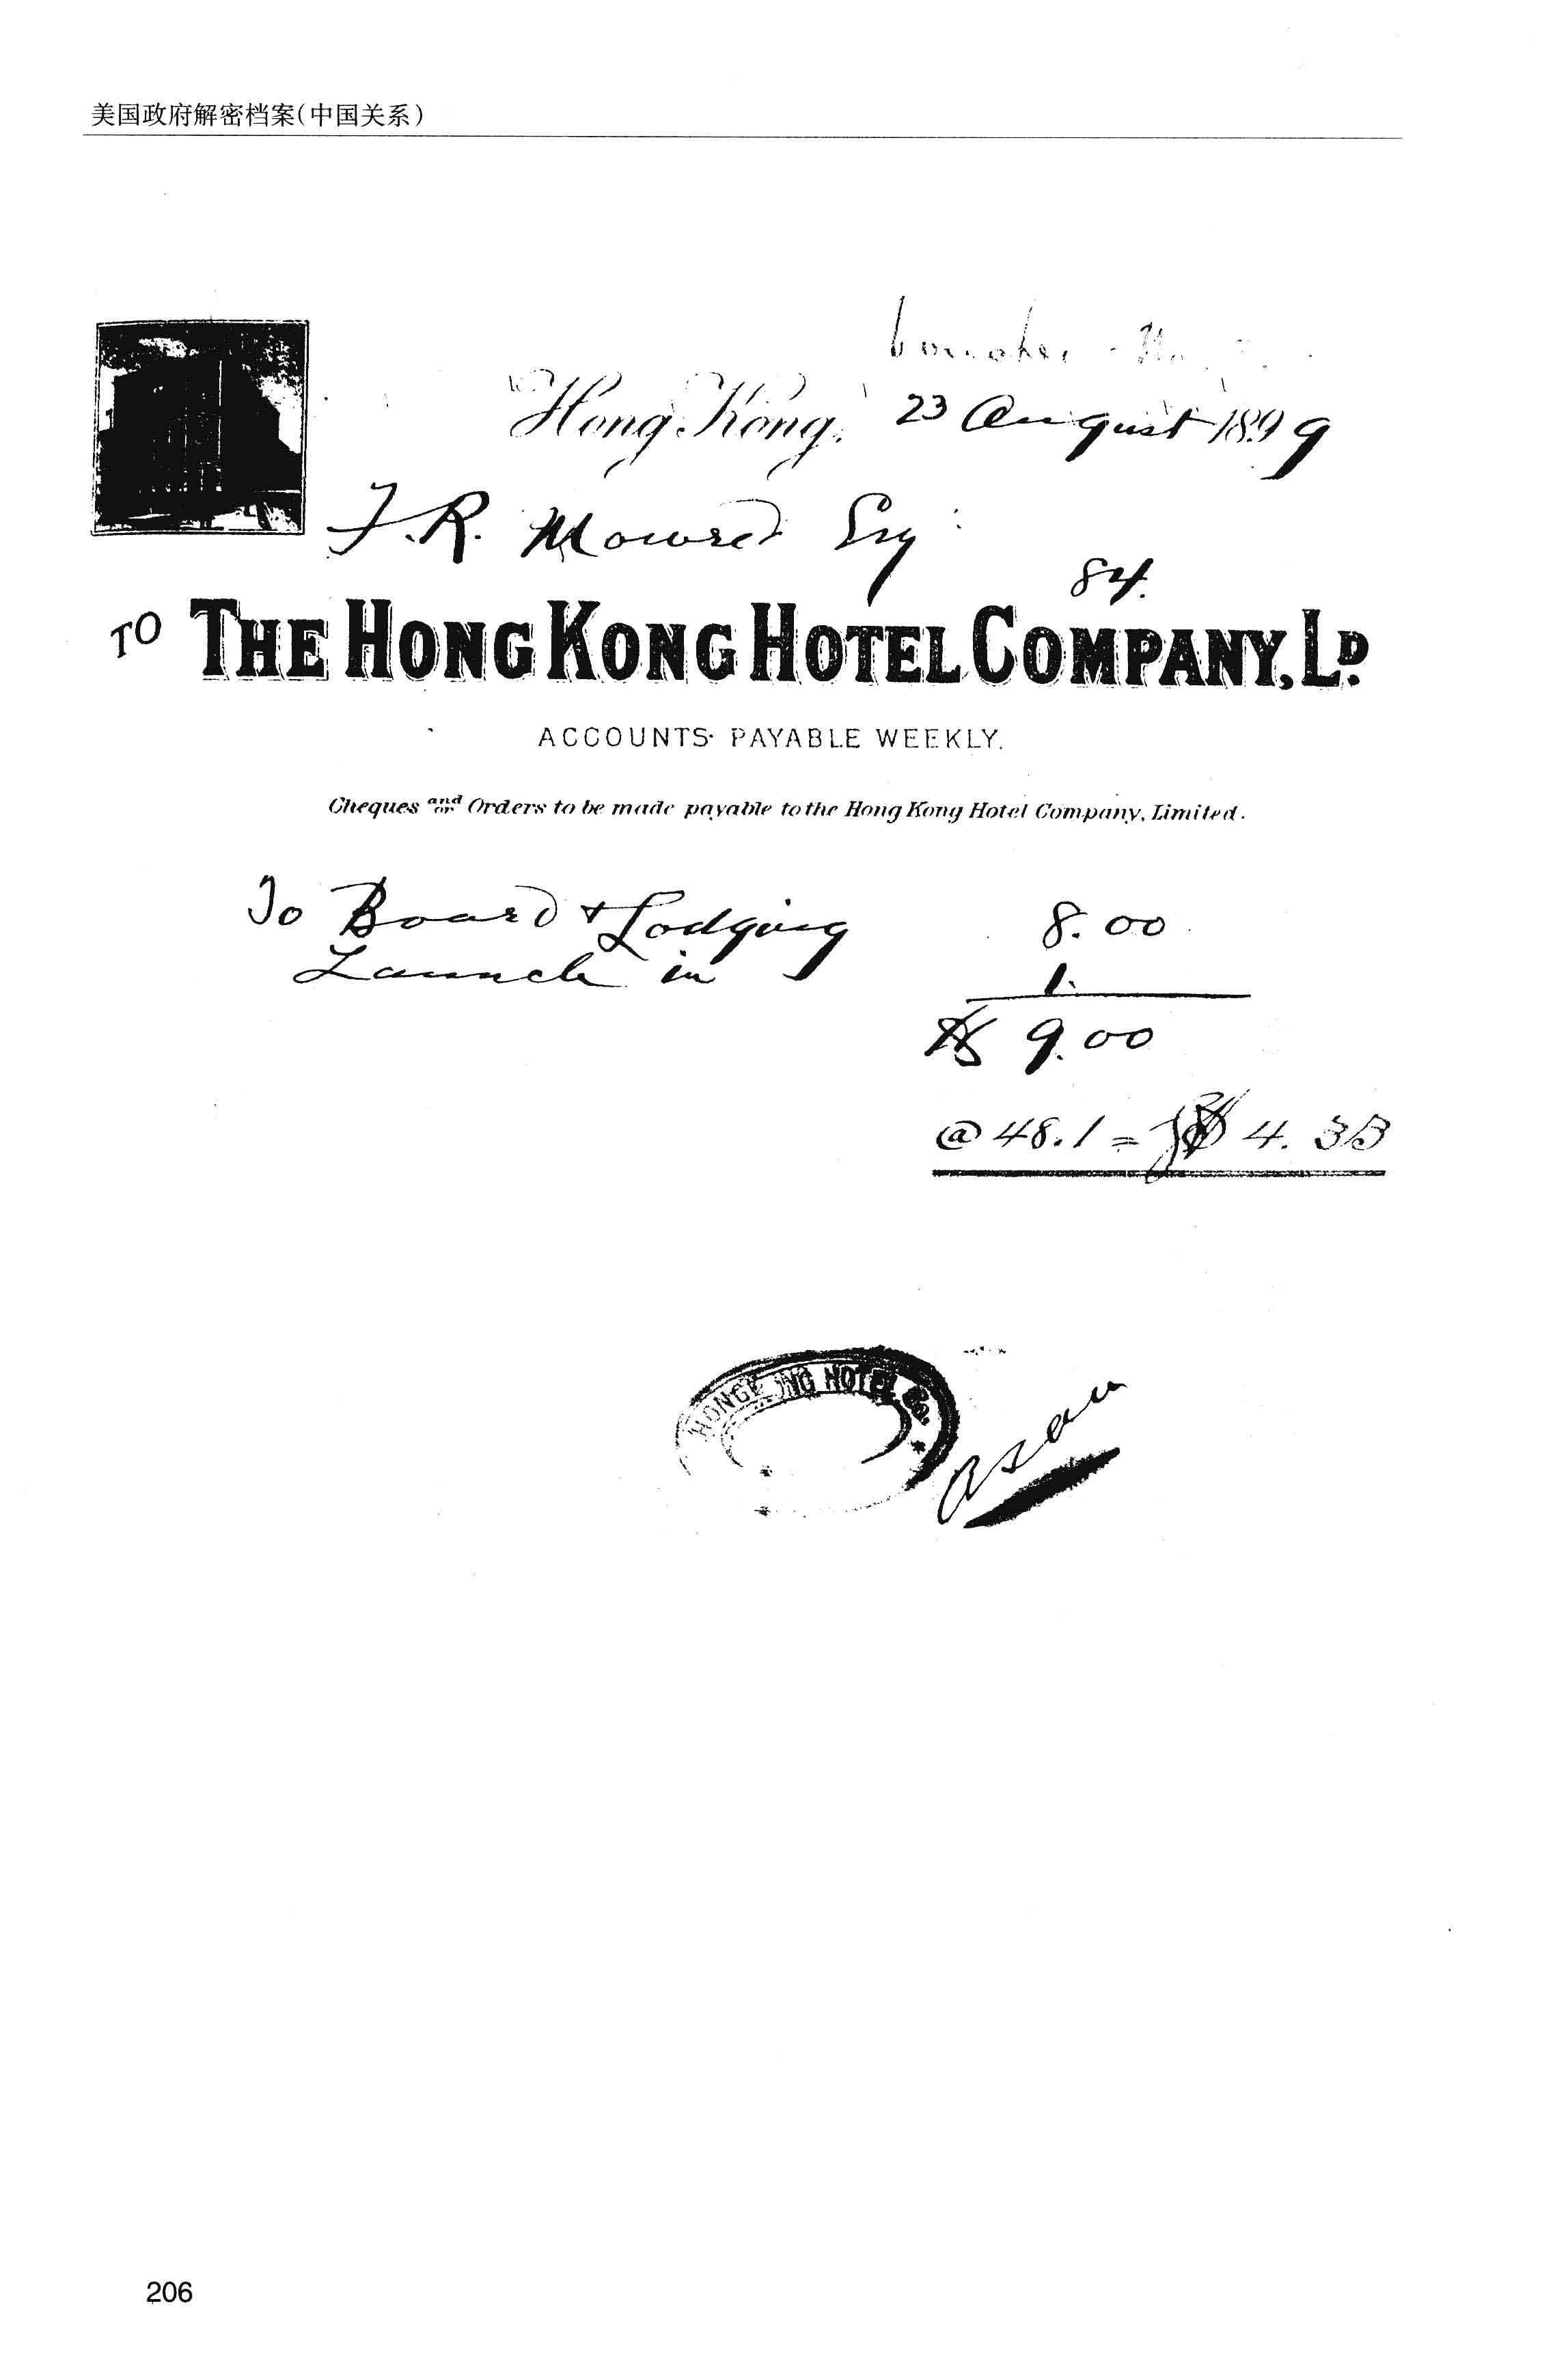 美国政府解密档案(中国关系)
Hong Kong, 23 August 1899
F. R. Mowrer Esq
84.
TO THE HONG KONG HOTEL COMPANY, LD.
ACCOUNTS PAYABLE WEEKLY.
Cheques and/or Orders to be made payable to the Hong Kong Hotel Company, Limited.
To Board & Lodging 8.00
Launch in 1.
$ 9.00
@ 48.1 = $ 4.33
HONGK NG HOTEL Co.
206